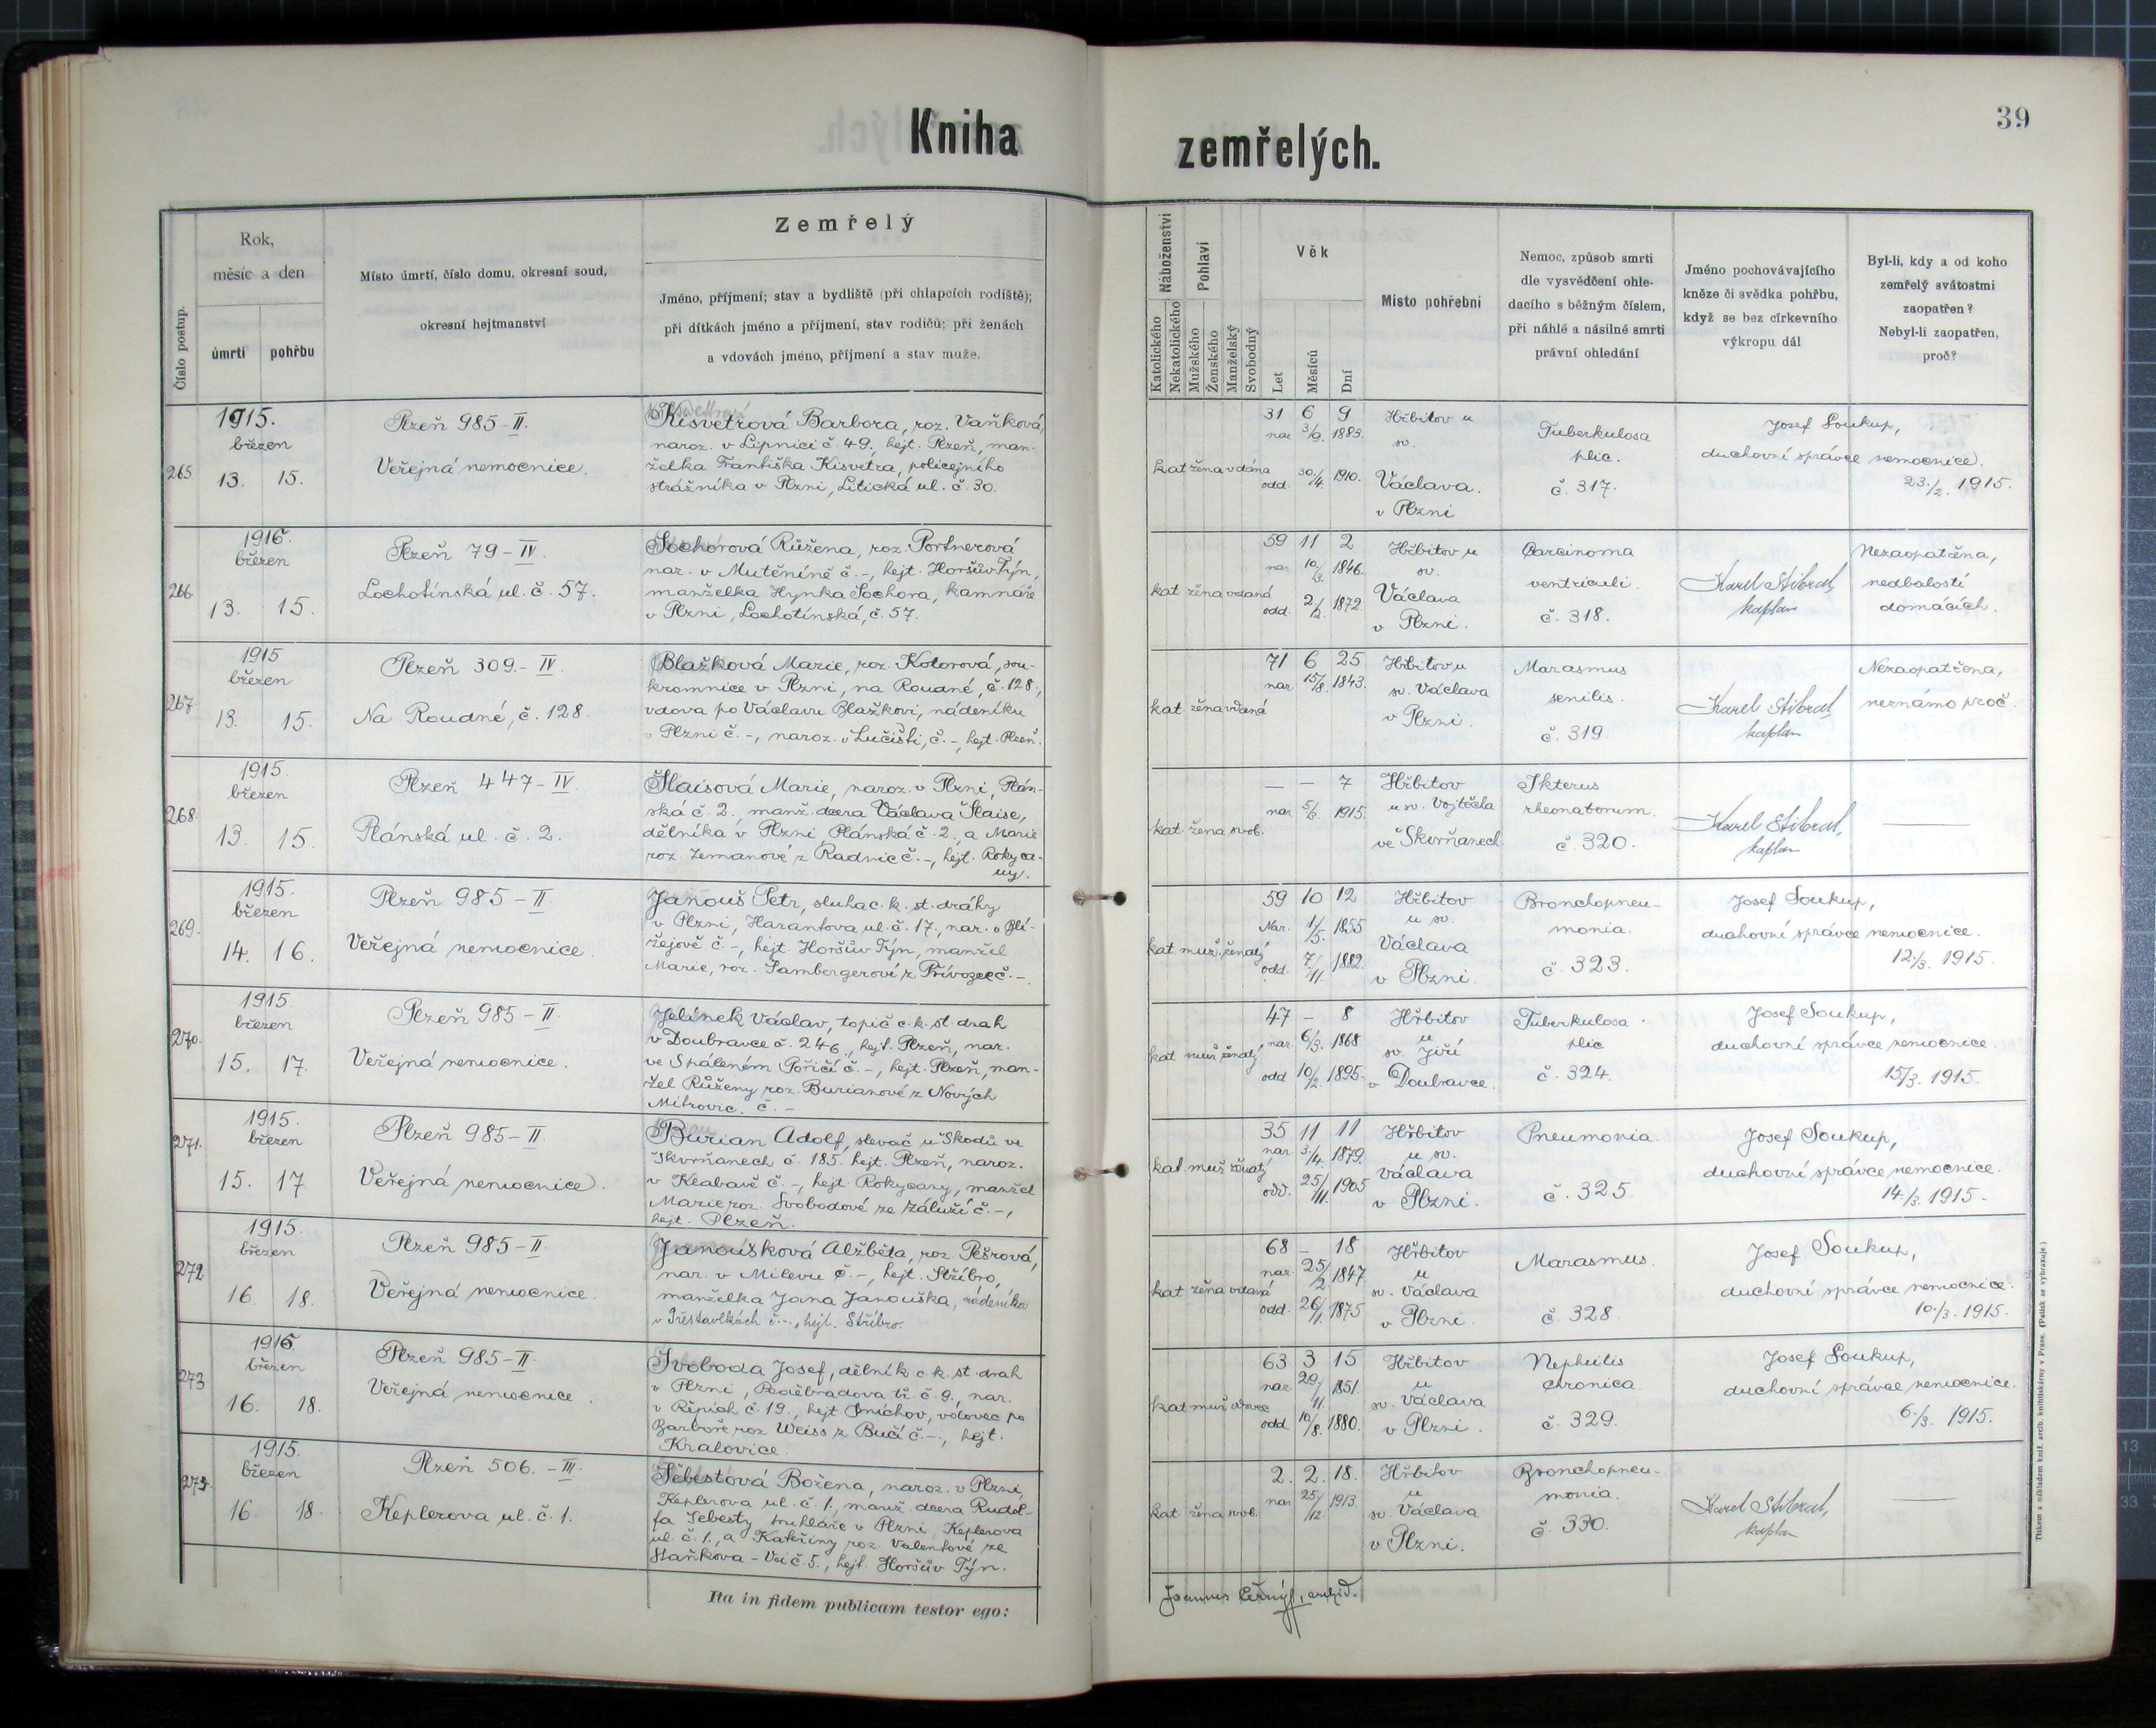 Kniha
zemřelých.
39
Číslo postup.
Rok,
měsíc a den
úmrtí
pohřbu
Místo úmrtí, číslo domu, okresní soud,
okresní hejtmanství
Zemřelý
Jméno, příjmení; stav a bydliště (při chlapcích rodiště);
při dítkách jméno a příjmení, stav rodičů; při ženách
a vdovách jméno, příjmení a stav muže.
Náboženství
Katolického
Nekatolického
Pohlaví
Mužského
Ženského
Manželský
Svobodný
Věk
Let
Měsíců
Dní
Místo pohřební
Nemoc, způsob smrti
dle vysvědčení ohle-
dacího s běžným číslem,
při náhlé a násilné smrti
právní ohledání
Jméno pochovávajícího
kněze či svědka pohřbu,
když se bez církevního
výkropu dál
Byl-li, kdy a od koho
zemřelý svátostmi
zaopatřen?
Nebyl-li zaopatřen,
proč?
265
1915.
březen
13. 15.
Plzeň 985-II.
Veřejná nemocnice.
Kisvetrová Barbora, roz. Vaňková,
naroz. v Lipnici č. 49., hejt. Plzeň, man-
želka Františka Kisvetra, policejního
strážníka v Plzni, Litická ul. č. 30.
kat žena vdána
31 6 9
nar 3/9. 1883.
odd. 30./4. 1910.
Hřbitov u
sv.
Václava.
v Plzni
Tuberkulosa
plic.
č. 317.
Josef Soukup,
duchovní správce nemocnice.
23./2. 1915.
266
1915.
březen
13. 15.
Plzeň 79-IV.
Lochotínská ul. č. 57.
Sochorová Růžena, roz. Portnerová
nar. v Mutěníně č. -, hejt. Horšův Týn,
manželka Hynka Sochora, kamnáře
v Plzni, Lochotínská, č. 57.
kat žena vdaná
59 11 2
nar 10/3. 1846.
odd. 2./2. 1872.
Hřbitov u
sv.
Václava
v Plzni.
Carcinoma
ventriculi.
č. 318.
Karel Stibral,
kaplan
Nezaopatřena,
nedbalostí
domácích.
267
1915
březen
13. 15.
Plzeň 309.- IV.
Na Roudné, č. 128.
Blažková Marie, roz. Kotorová, sou-
kromnice v Plzni, na Roudné, č. 128.,
vdova po Václavu Blažkovi, nádeníku
v Plzni č. -, naroz. v Lučišti, č. -, hejt. Plzeň.
kat. žena vdaná
71 6 25
nar. 15/8. 1843.
Hřbitov u
sv. Václava
v Plzni.
Marasmus
senilis.
č. 319.
Karel Stibral,
kaplan
Nezaopatřena,
neznámo proč.
268.
1915.
březen
13. 15.
Plzeň 447-IV.
Plánská ul. č. 2.
Šlaisová Marie, naroz. v Plzni, Plán-
ská č. 2., manž. dcera Václava Šlaise,
dělníka v Plzni, Plánská č. 2., a Marie
roz. Zemanové z Radnic č. -, hejt. Rokyca-
ny.
kat. žena svob.
— — 7
nar. 5/3. 1915.
Hřbitov
u sv. Vojtěcha
ve Skvrňanech.
Ikterus
rheonatorum.
č. 320.
Karel Stibral,
kaplan
—
269.
1915.
březen
14. 16.
Plzeň 985-II.
Veřejná nemocnice.
Janouš Petr, sluha c. k. st. dráhy
v Plzni, Harantova ul. č. 17., nar. v Bli-
žejově č. -, hejt. Horšův Týn, manžel
Marie, roz. Sambergerové z Přívozce č. -.
kat. muž. ženatý
59 10 12
Nar. 1/5. 1855
odd. 7./11. 1882.
Hřbitov
u sv.
Václava
v Plzni.
Bronchopneu-
monia.
č. 323.
Josef Soukup,
duchovní správce nemocnice.
12./3. 1915.
270.
1915.
březen
15. 17.
Plzeň 985-II.
Veřejná nemocnice.
Jelínek Václav, topič c. k. st. drah
v Doubravce č. 246., hejt. Plzeň, nar.
ve Spáleném Poříčí č. -, hejt. Plzeň, man-
žel Růženy roz. Burianové z Nových
Mitrovic. č. -
kat muž ženatý
47 - 8
nar. 6/3. 1868
odd 10/2. 1895.
Hřbitov
u
sv. Jiří
v Doubravce.
Tuberkulosa
plic
č. 324.
Josef Soukup,
duchovní správce nemocnice.
15/3. 1915.
271.
1915.
březen
15. 17
Plzeň 985-II.
Veřejná nemocnice.
Burian Adolf, slevač u Škodů ve
Skvrňanech č. 185. hejt. Plzeň, naroz.
v Klabavě č. -, hejt. Rokycany, manžel
Marie roz. Svobodové ze Záluží č. -,
hejt. Plzeň.
kat. muž ženatý
35 11 11
nar 3./4. 1879.
odd. 25/11. 1905
Hřbitov
u sv.
Václava
v Plzni.
Pneumonia.
č. 325.
Josef Soukup,
duchovní správce nemocnice.
14./3. 1915.
272.
1915.
březen
16. 18.
Plzeň 985-II.
Veřejná nemocnice.
Janoušková Alžběta, roz Pešrová,
nar. v Milevu č. -, hejt. Stříbro,
manželka Jana Janouška, nádeníka
v Přestavlkách č. -., hejt. Stříbro.
kat žena vdaná
68 - 18
nar. 25/2 1847.
odd. 26/1. 1875
Hřbitov
u
sv. Václava
v Plzni.
Marasmus.
č 328.
Josef Soukup,
duchovní správce nemocnice.
10./3. 1915.
273
1915
březen
16. 18.
Plzeň 985-II.
Veřejná nemocnice.
Svoboda Josef, dělník c. k. st. drah
v Plzni, Poděbradova tř. č. 9., nar.
v č. 19., hejt Smíchov, vdovec po
Barboře roz Weiss z Bučí č. -., hejt.
Kralovice.
kat muž vdovec
63 3 15
nar. 29./11. 1851.
odd. 10/8. 1880.
Hřbitov
u
sv. Václava
v Plzni.
Nephritis
chronica.
č. 329.
Josef Soukup,
duchovní správce nemocnice.
6./3. 1915.
274.
1915.
březen
16. 18.
Plzeň 506. - III.
Keplerova ul. č. 1.
Šebestová Božena, naroz. v Plzni,
Keplerova ul. č. 1, manž. dcera Rudol-
fa Šebesty, truhláře v Plzni, Keplerova
ul. č. 1., a Kateřiny roz. Valentové ze
Staňkova - Vsi č. 5., hejt. Horšův Týn.
kat. žena svob.
2. 2. 18.
nar 25./12. 1913.
Hřbitov
u
sv. Václava
v Plzni.
Bronchopneu-
monia.
č. 330.
Karel Stibral,
kaplan
—
Ita in fidem publicam testor ego:
Joannes Černý, archid.
Tiskem a nákladem kníž. arcib. knihtiskárny v Praze. (Patisk se vyhrazuje.)